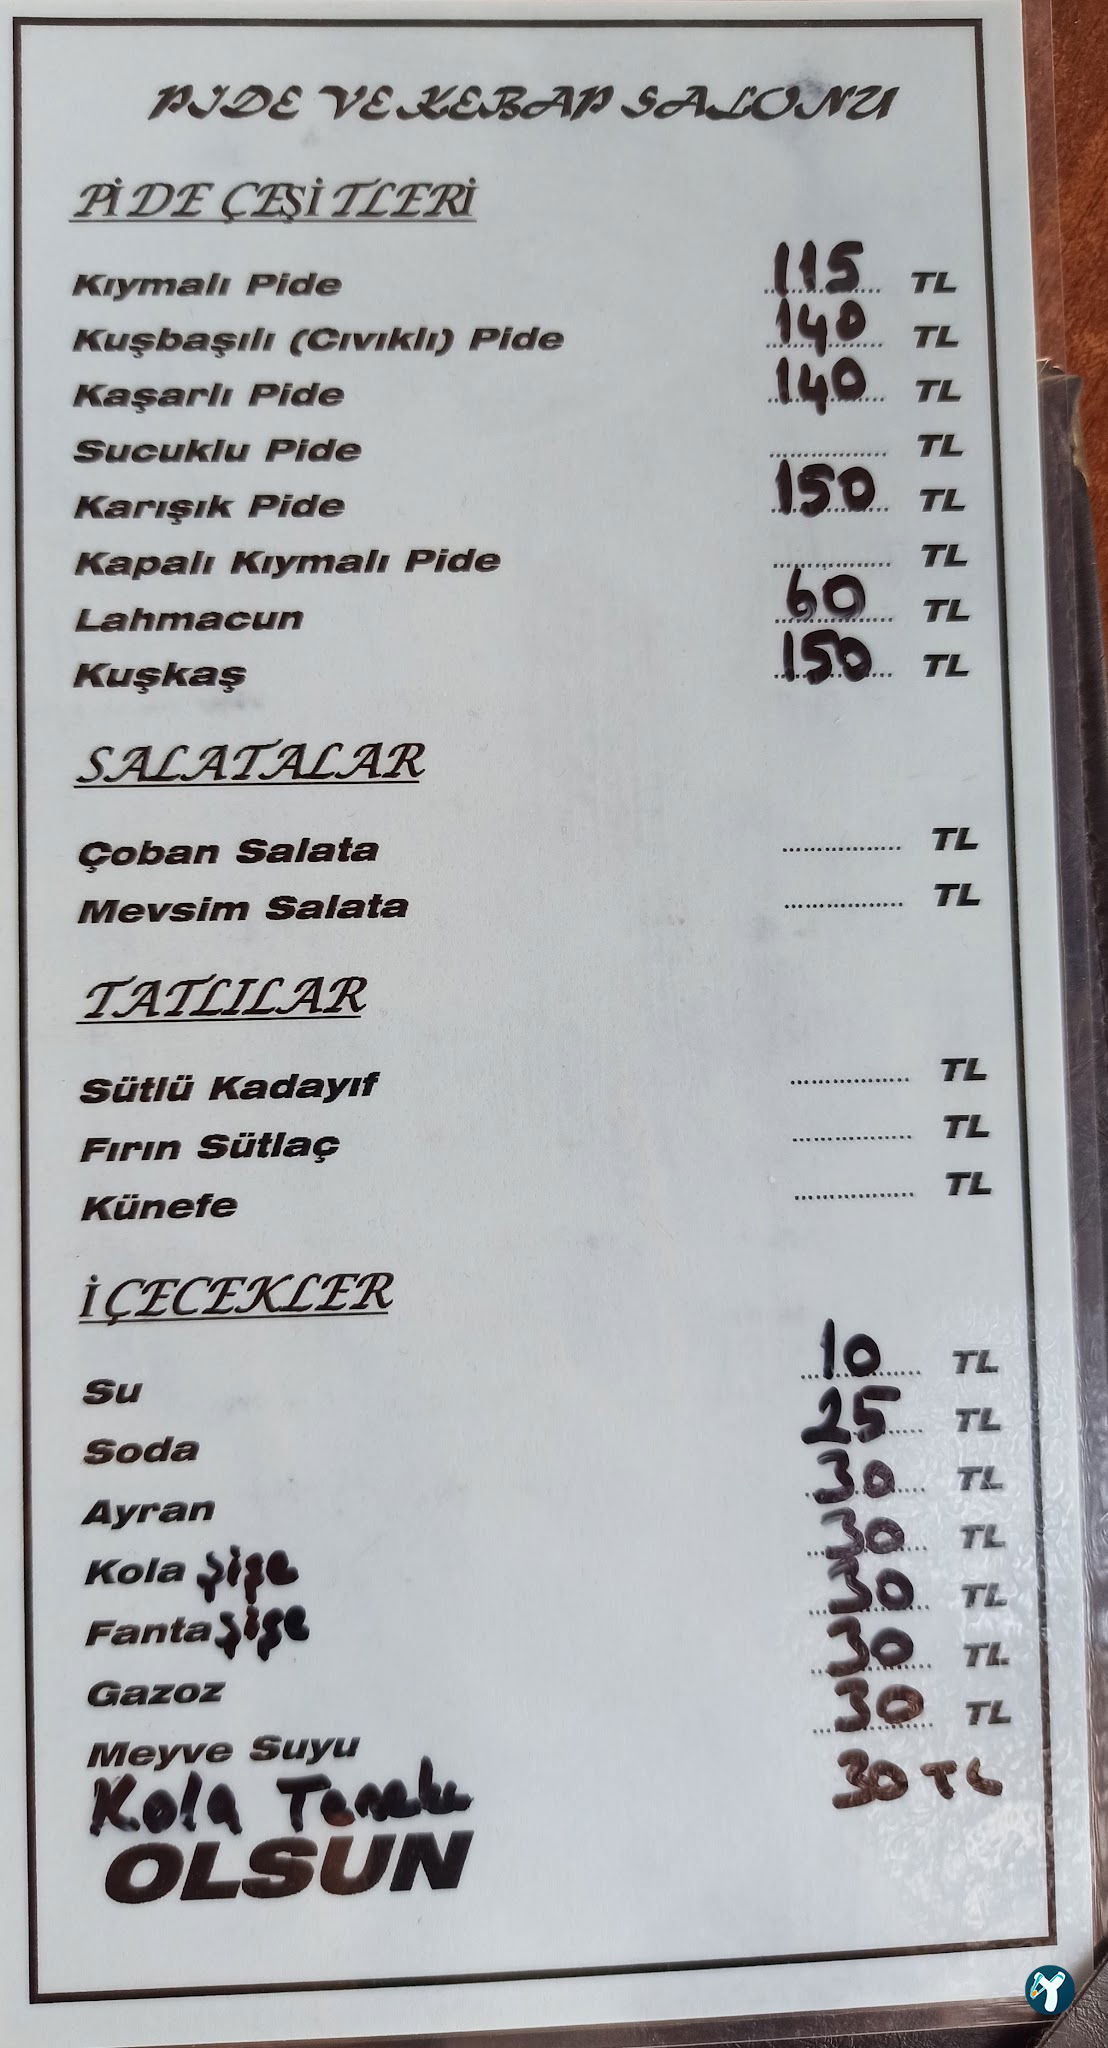 PIDE VE KEBAP SALONU
PİDE ÇEŞİTLERİ
Kıymalı Pide 115 TL
Kuşbaşılı (Cıvıklı) Pide 140 TL
Kaşarlı Pide 140 TL
Sucuklu Pide ................. TL
Karışık Pide 150 TL
Kapalı Kıymalı Pide ................. TL
Lahmacun 60 TL
Kuşkaş 150 TL
SALATALAR
Çoban Salata ................. TL
Mevsim Salata ................. TL
TATLILAR
Sütlü Kadayıf ................. TL
Fırın Sütlaç ................. TL
Künefe ................. TL
İÇECEKLER
Su 10 TL
Soda 25 TL
Ayran 30 TL
Kola şişe 30 TL
Fanta şişe 30 TL
Gazoz 30 TL
Meyve Suyu 30 TL
Kola Teneke 30 TL
OLSUN